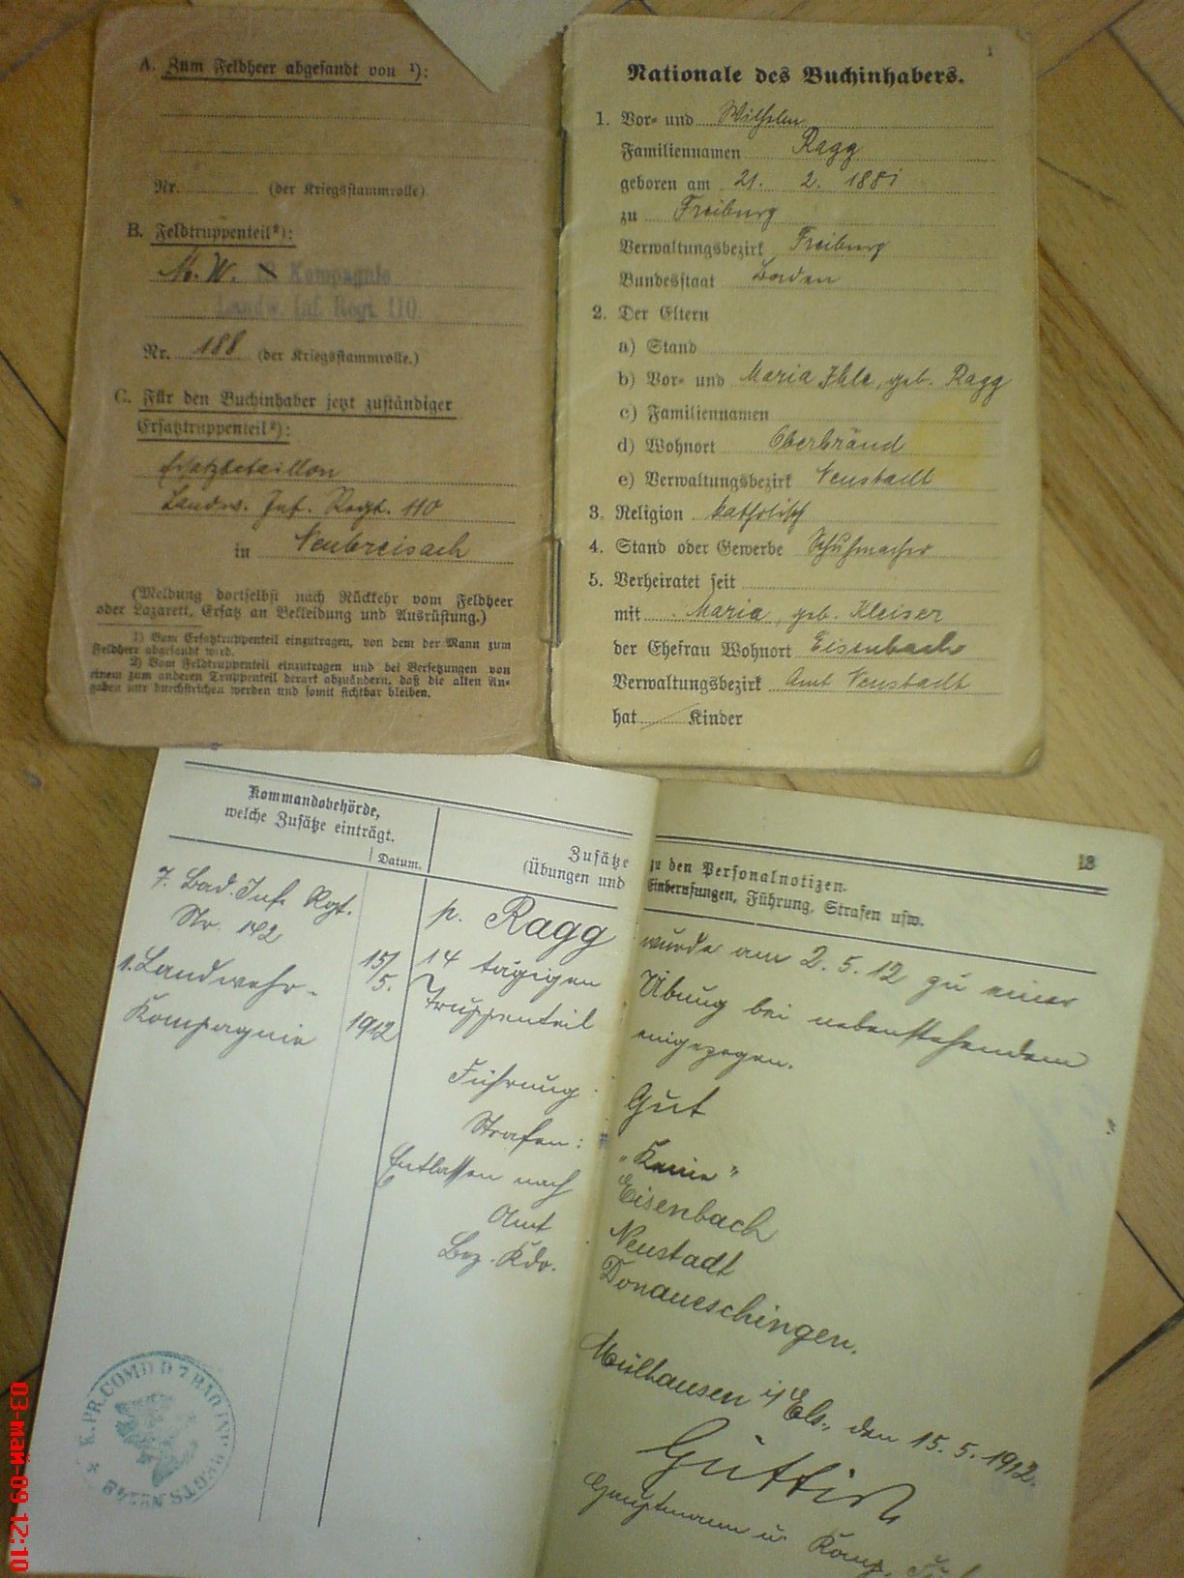 A. Zum Feldheer abgesandt von ¹):
Nr. (der Kriegsstammrolle)
B. Feldtruppenteil²):
M. W. Kompagnie
Landw. Inf. Regt. 110.
Nr. 188 (der Kriegsstammrolle.)
C. Für den Buchinhaber jetzt zuständiger
Ersatztruppenteil²):
Ersatzbataillon
Landw. Inf. Regt. 110
in Neubreisach
(Meldung dortselbst nach Rückkehr vom Feldheer
oder Lazarett, Ersatz an Bekleidung und Ausrüstung.)
1) Vom Ersatztruppenteil einzutragen, von dem der Mann zum
Feldheer abgesandt wird.
2) Vom Feldtruppenteil einzutragen und bei Versetzungen von
einem zum anderen Truppenteil derart abzuändern, daß die alten An-
gaben nur durchstrichen werden und somit sichtbar bleiben.
1
Nationale des Buchinhabers.
1. Vor- und Wilhelm
Familiennamen Ragg
geboren am 21. 2. 1881
zu Freiburg
Verwaltungsbezirk Freiburg
Bundesstaat Baden
2. Der Eltern
a) Stand
b) Vor- und Maria Ihle, geb. Ragg
c) Familiennamen
d) Wohnort Oberbränd
e) Verwaltungsbezirk Neustadt
3. Religion katholisch
4. Stand oder Gewerbe Schuhmacher
5. Verheiratet seit
mit Maria, geb. Kleiser
der Ehefrau Wohnort Eisenbach
Verwaltungsbezirk Amt Neustadt
hat Kinder
Kommandobehörde,
welche Zusätze einträgt.
Datum.
Zusätze
(Übungen und
7. Bad. Inf. Rgt.
Nr. 142
1. Landwehr-
Kompagnie
15/
5.
1912
p. Ragg
14 tägigen
Truppenteil
Führung:
Strafen:
Entlassen nach
Amt
Bez. Kdo.
K. PR. COMD D 7 BAD INF REGTS No 142
13
zu den Personalnotizen.
Einberufungen, Führung, Strafen usw.
wurde am 2. 5. 12 zu einer
Übung bei nebenstehendem
eingezogen.
Gut
"Keine"
Eisenbach
Neustadt
Donaueschingen.
Mülhausen i/Els., den 15. 5. 1912.
Hauptmann u. Komp.
03-май-09 12:10